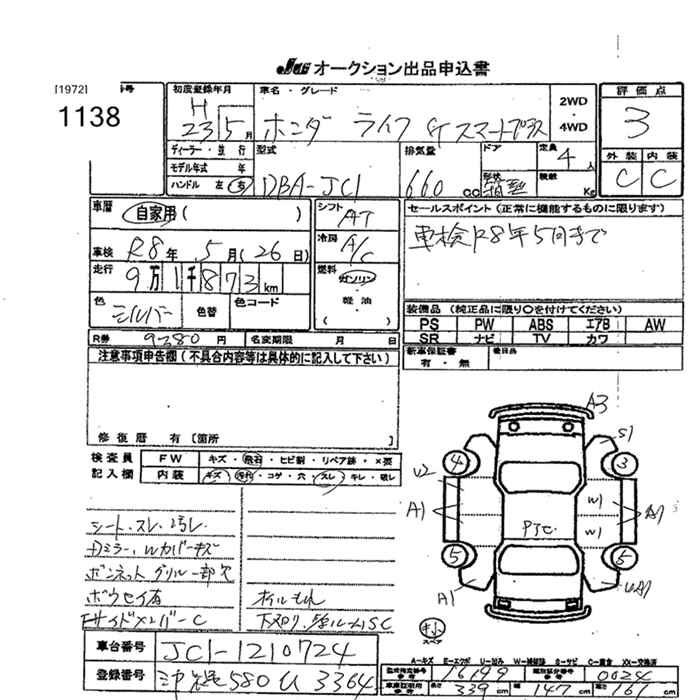 JU オークション出品申込書
[1972]
1138
初度登録年月
H
23 5月
車名・グレード
ホンダ ライフ Gスマートプラス
2WD
4WD
評価点
3
外装 内装
C C
ディーラー・並行
モデル年式 年
ハンドル 左 右
型式
DBA-JC1
排気量
660 CC
ドア
形状
箱型
定員
4人
積載
Kg
車歴
自家用 ( )
車検 R8年 5月(26日)
走行 9万1千873km
色
シルバー
色替
色コード
シフト
AT
冷房
A/C
燃料
ガソリン
軽油
( )
セールスポイント(正常に機能するものに限ります)
車検R8年5月まで
装備品(純正品に限り○を付けてください)
PS PW ABS エアB AW
SR ナビ TV カワ
新車保証書
有・無
後日品
R券 9280円
名変期限 月 日
注意事項申告欄(不具合内容等は具体的に記入して下さい)
修復歴 有[箇所 ]
検査員
記入欄
FW キズ・飛石・ヒビ割・リペア跡・×要
内装 キズ・汚れ・コゲ・穴・スレ・キレ・破レ
シート、スレ、汚レ
Dミラー、Wカバーキズ
ボンネット、グリル一部欠
ボウセイ有
FサイドメンバーC
オイルもれ
下スリ、
A3
S1
4
3
U2
A1
W1
W1
A1
PTC
5
5
A1
UA1
小
スペア
A-キズ E-エクボ U-凹み W-補修跡 S-サビ C-腐食 XX-交換済
車台番号 JC1-1210724
登録番号 沖縄580 U 3364
型式指定番号 16199
類別区分番号 0024
長さ 339cm
幅 147cm
高さ 161cm